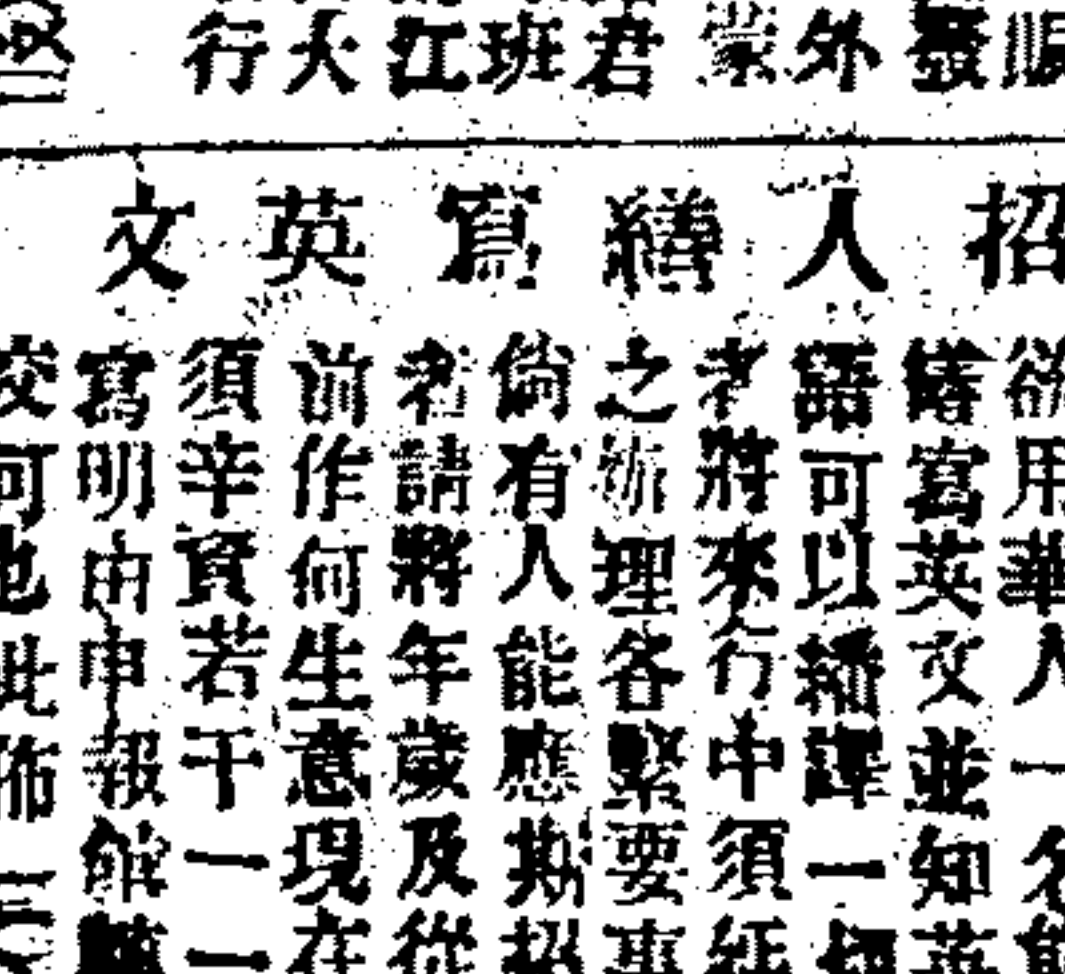 順
發
外
蒙
君
班
江
大
行
招人繕寫英文
欲用華人一名能
繕寫英文並知英
語可以繙譯一切
者將來行中須經
之術理各緊要事
倘有人能應斯招
者請將年歲及從
前作何生意現在
須辛資若干一一
寫明由申報館轉
交何也此佈